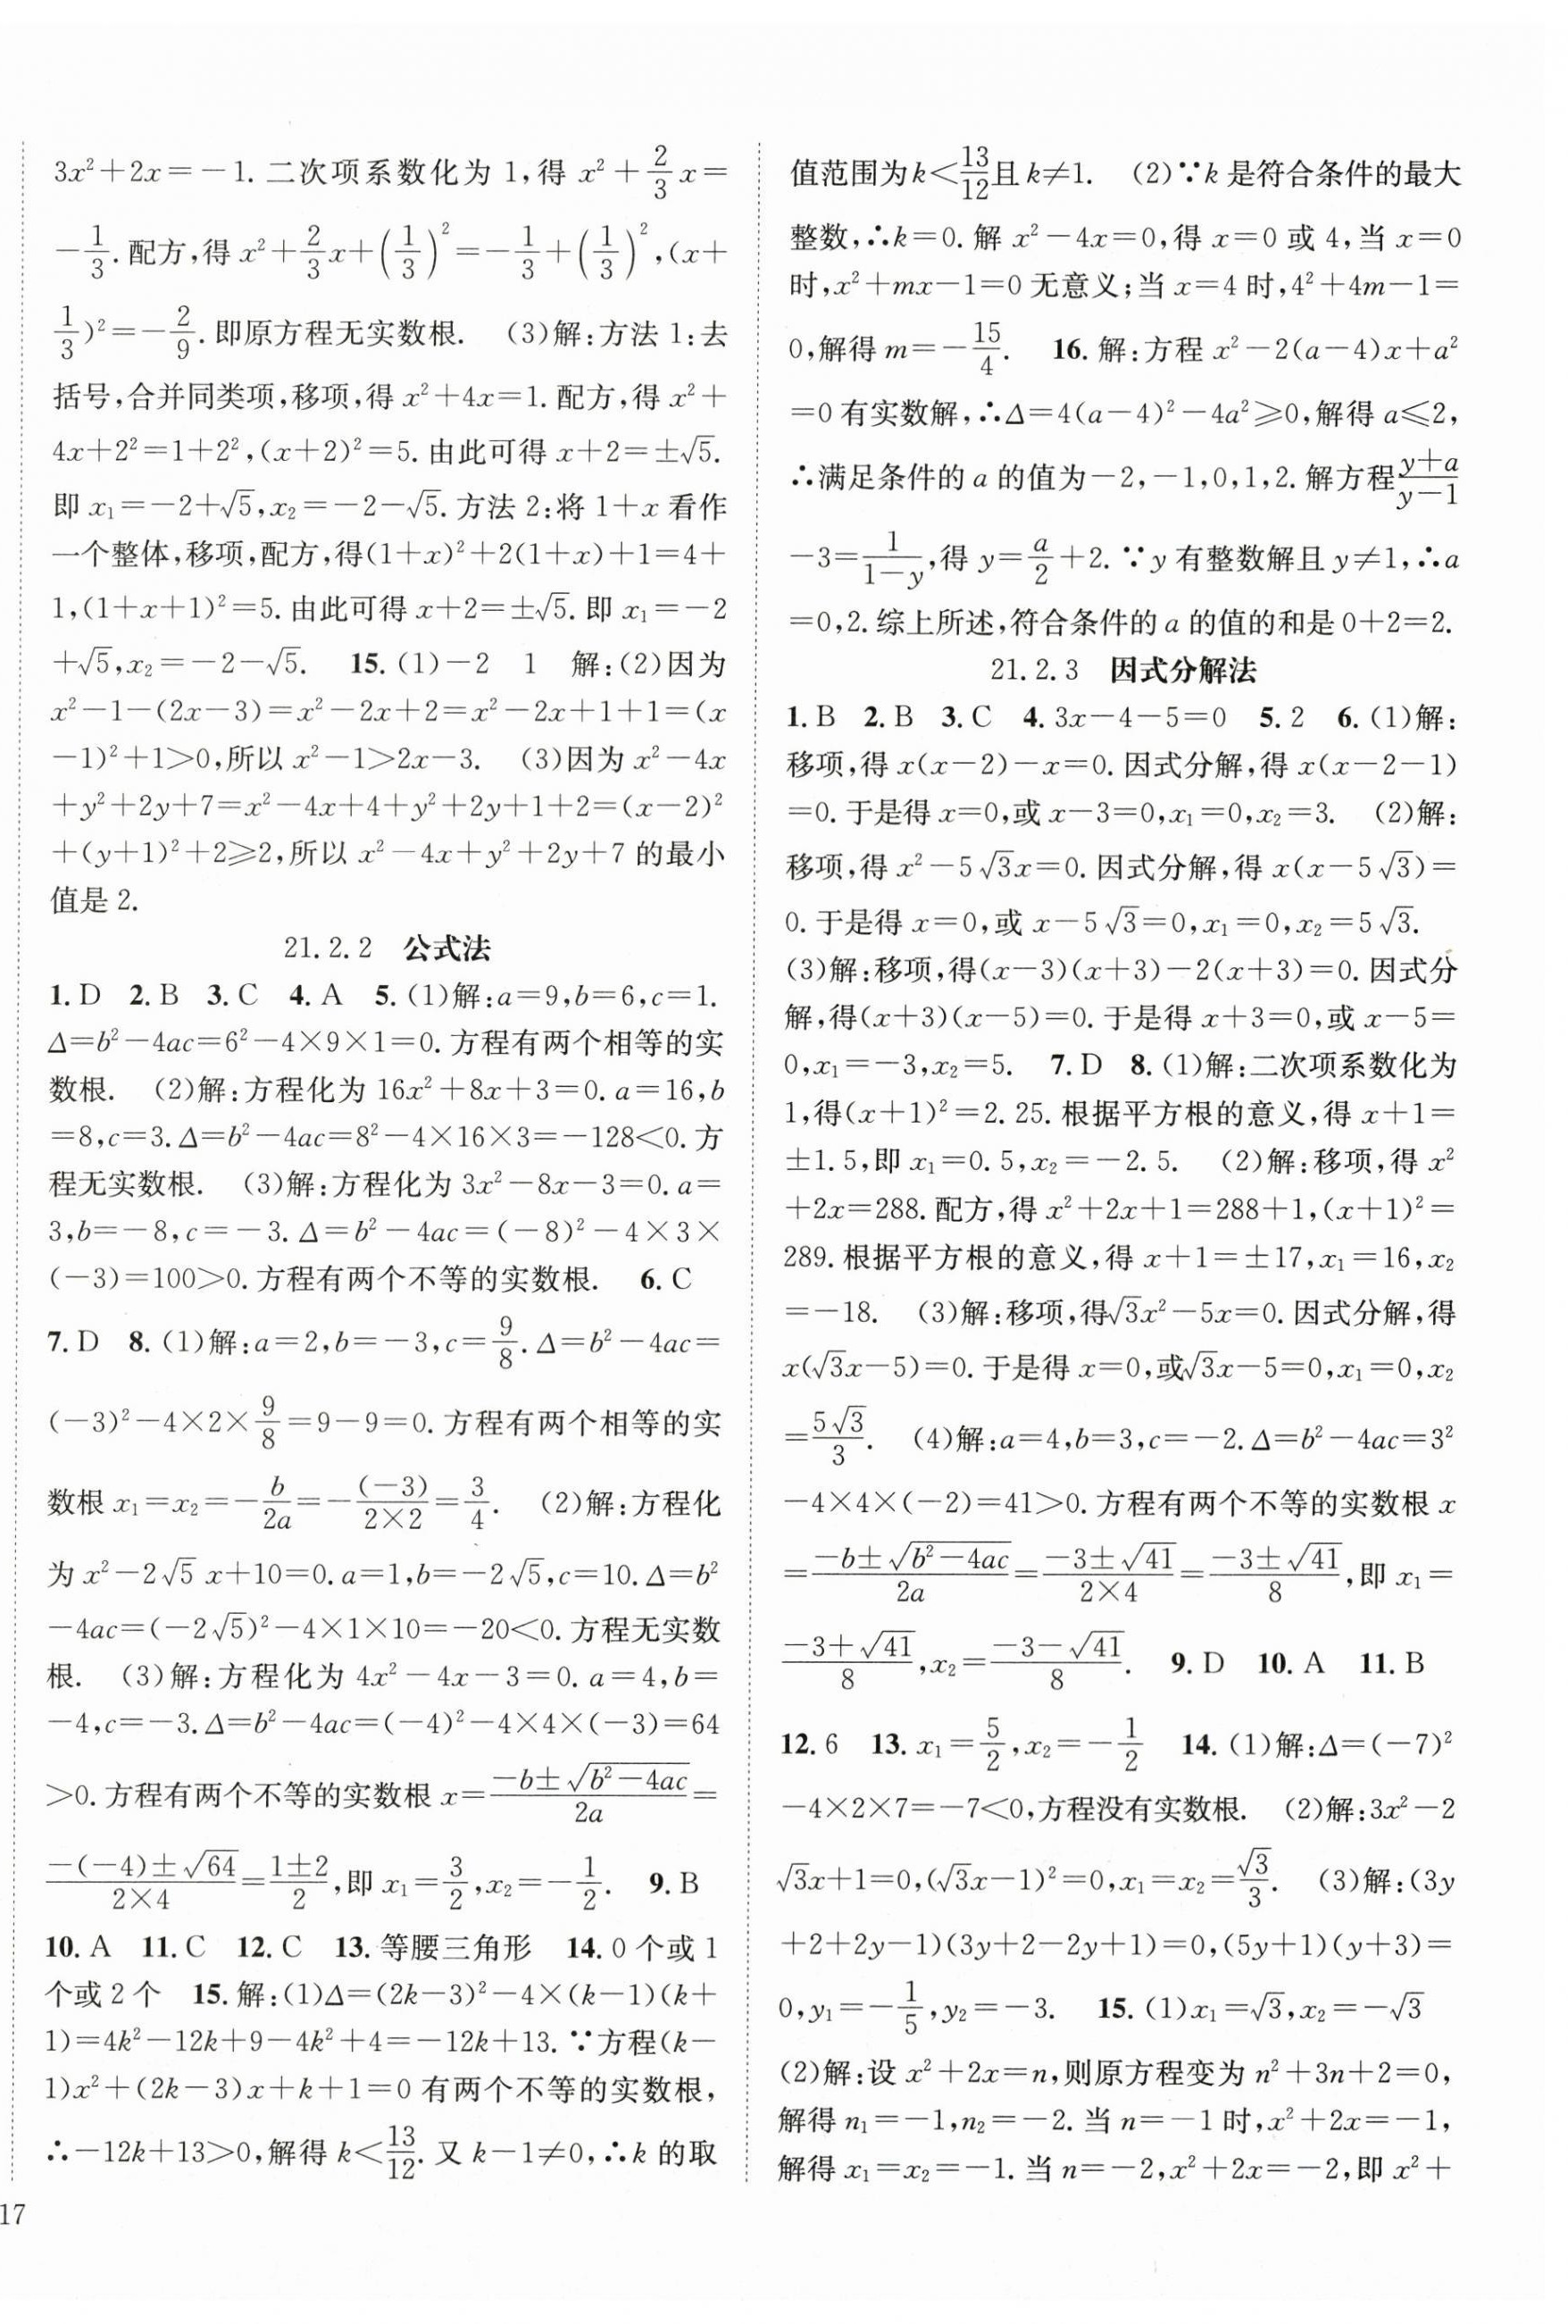 3x²+2x=-1. 二次项系数化为 1,得 x²+\frac{2}{3}x=
-\frac{1}{3}. 配方,得 x²+\frac{2}{3}x+(\frac{1}{3})²=-\frac{1}{3}+(\frac{1}{3})²,(x+
\frac{1}{3})²=-\frac{2}{9}. 即原方程无实数根. (3)解:方法 1:去
括号,合并同类项,移项,得 x²+4x=1. 配方,得 x²+
4x+2²=1+2²,(x+2)²=5. 由此可得 x+2=±√5.
即 x₁=-2+√5,x₂=-2-√5. 方法 2:将 1+x 看作
一个整体,移项,配方,得(1+x)²+2(1+x)+1=4+
1,(1+x+1)²=5. 由此可得 x+2=±√5. 即 x₁=-2
+√5,x₂=-2-√5. 15. (1)-2 1 解:(2)因为
x²-1-(2x-3)=x²-2x+2=x²-2x+1+1=(x
-1)²+1>0,所以 x²-1>2x-3. (3)因为 x²-4x
+y²+2y+7=x²-4x+4+y²+2y+1+2=(x-2)²
+(y+1)²+2≥2,所以 x²-4x+y²+2y+7 的最小
值是 2.
21.2.2 公式法
1. D 2. B 3. C 4. A 5. (1)解:a=9,b=6,c=1.
Δ=b²-4ac=6²-4×9×1=0. 方程有两个相等的实
数根. (2)解:方程化为 16x²+8x+3=0. a=16,b
=8,c=3. Δ=b²-4ac=8²-4×16×3=-128<0. 方
程无实数根. (3)解:方程化为 3x²-8x-3=0. a=
3,b=-8,c=-3. Δ=b²-4ac=(-8)²-4×3×
(-3)=100>0. 方程有两个不等的实数根. 6. C
7. D 8. (1)解:a=2,b=-3,c=\frac{9}{8}. Δ=b²-4ac=
(-3)²-4×2×\frac{9}{8}=9-9=0. 方程有两个相等的实
数根 x₁=x₂=-\frac{b}{2a}=-\frac{(-3)}{2×2}=\frac{3}{4}. (2)解:方程化
为 x²-2√5 x+10=0. a=1,b=-2√5,c=10. Δ=b²
-4ac=(-2√5)²-4×1×10=-20<0. 方程无实数
根. (3)解:方程化为 4x²-4x-3=0. a=4,b=
-4,c=-3. Δ=b²-4ac=(-4)²-4×4×(-3)=64
>0. 方程有两个不等的实数根 x=\frac{-b±√(b²-4ac)}{2a}=
\frac{-(-4)±√64}{2×4}=\frac{1±2}{2},即 x₁=\frac{3}{2},x₂=-\frac{1}{2}. 9. B
10. A 11. C 12. C 13. 等腰三角形 14. 0 个或 1
个或 2 个 15. 解:(1)Δ=(2k-3)²-4×(k-1)(k+
1)=4k²-12k+9-4k²+4=-12k+13. ∵方程(k-
1)x²+(2k-3)x+k+1=0 有两个不等的实数根,
∴-12k+13>0,解得 k<\frac{13}{12}. 又 k-1≠0,∴k 的取
17
值范围为k<\frac{13}{12}且 k≠1. (2)∵k 是符合条件的最大
整数,∴k=0. 解 x²-4x=0,得 x=0 或 4,当 x=0
时,x²+mx-1=0 无意义;当 x=4 时,4²+4m-1=
0,解得 m=-\frac{15}{4}. 16. 解:方程 x²-2(a-4)x+a²
=0 有实数解,∴Δ=4(a-4)²-4a²≥0,解得 a≤2,
∴满足条件的 a 的值为-2,-1,0,1,2. 解方程\frac{y+a}{y-1}
-3=\frac{1}{1-y},得 y=\frac{a}{2}+2. ∵y 有整数解且 y≠1,∴a
=0,2. 综上所述,符合条件的 a 的值的和是 0+2=2.
21.2.3 因式分解法
1. B 2. B 3. C 4. 3x-4-5=0 5. 2 6. (1)解:
移项,得 x(x-2)-x=0. 因式分解,得 x(x-2-1)
=0. 于是得 x=0,或 x-3=0,x₁=0,x₂=3. (2)解:
移项,得 x²-5√3x=0. 因式分解,得 x(x-5√3)=
0. 于是得 x=0,或 x-5√3=0,x₁=0,x₂=5√3.
(3)解:移项,得(x-3)(x+3)-2(x+3)=0. 因式分
解,得(x+3)(x-5)=0. 于是得 x+3=0,或 x-5=
0,x₁=-3,x₂=5. 7. D 8. (1)解:二次项系数化为
1,得(x+1)²=2.25. 根据平方根的意义,得 x+1=
±1.5,即 x₁=0.5,x₂=-2.5. (2)解:移项,得 x²
+2x=288. 配方,得 x²+2x+1=288+1,(x+1)²=
289. 根据平方根的意义,得 x+1=±17,x₁=16,x₂
=-18. (3)解:移项,得√3x²-5x=0. 因式分解,得
x(√3x-5)=0. 于是得 x=0,或√3x-5=0,x₁=0,x₂
=\frac{5√3}{3}. (4)解:a=4,b=3,c=-2. Δ=b²-4ac=3²
-4×4×(-2)=41>0. 方程有两个不等的实数根 x
=\frac{-b±√(b²-4ac)}{2a}=\frac{-3±√41}{2×4}=\frac{-3±√41}{8},即 x₁=
\frac{-3+√41}{8},x₂=\frac{-3-√41}{8}. 9. D 10. A 11. B
12. 6 13. x₁=\frac{5}{2},x₂=-\frac{1}{2} 14. (1)解:Δ=(-7)²
-4×2×7=-7<0,方程没有实数根. (2)解:3x²-2
√3x+1=0,(√3x-1)²=0,x₁=x₂=\frac{√3}{3}. (3)解:(3y
+2+2y-1)(3y+2-2y+1)=0,(5y+1)(y+3)=
0,y₁=-\frac{1}{5},y₂=-3. 15. (1)x₁=√3,x₂=-√3
(2)解:设 x²+2x=n,则原方程变为 n²+3n+2=0,
解得 n₁=-1,n₂=-2. 当 n=-1 时,x²+2x=-1,
解得 x₁=x₂=-1. 当 n=-2,x²+2x=-2,即 x²+